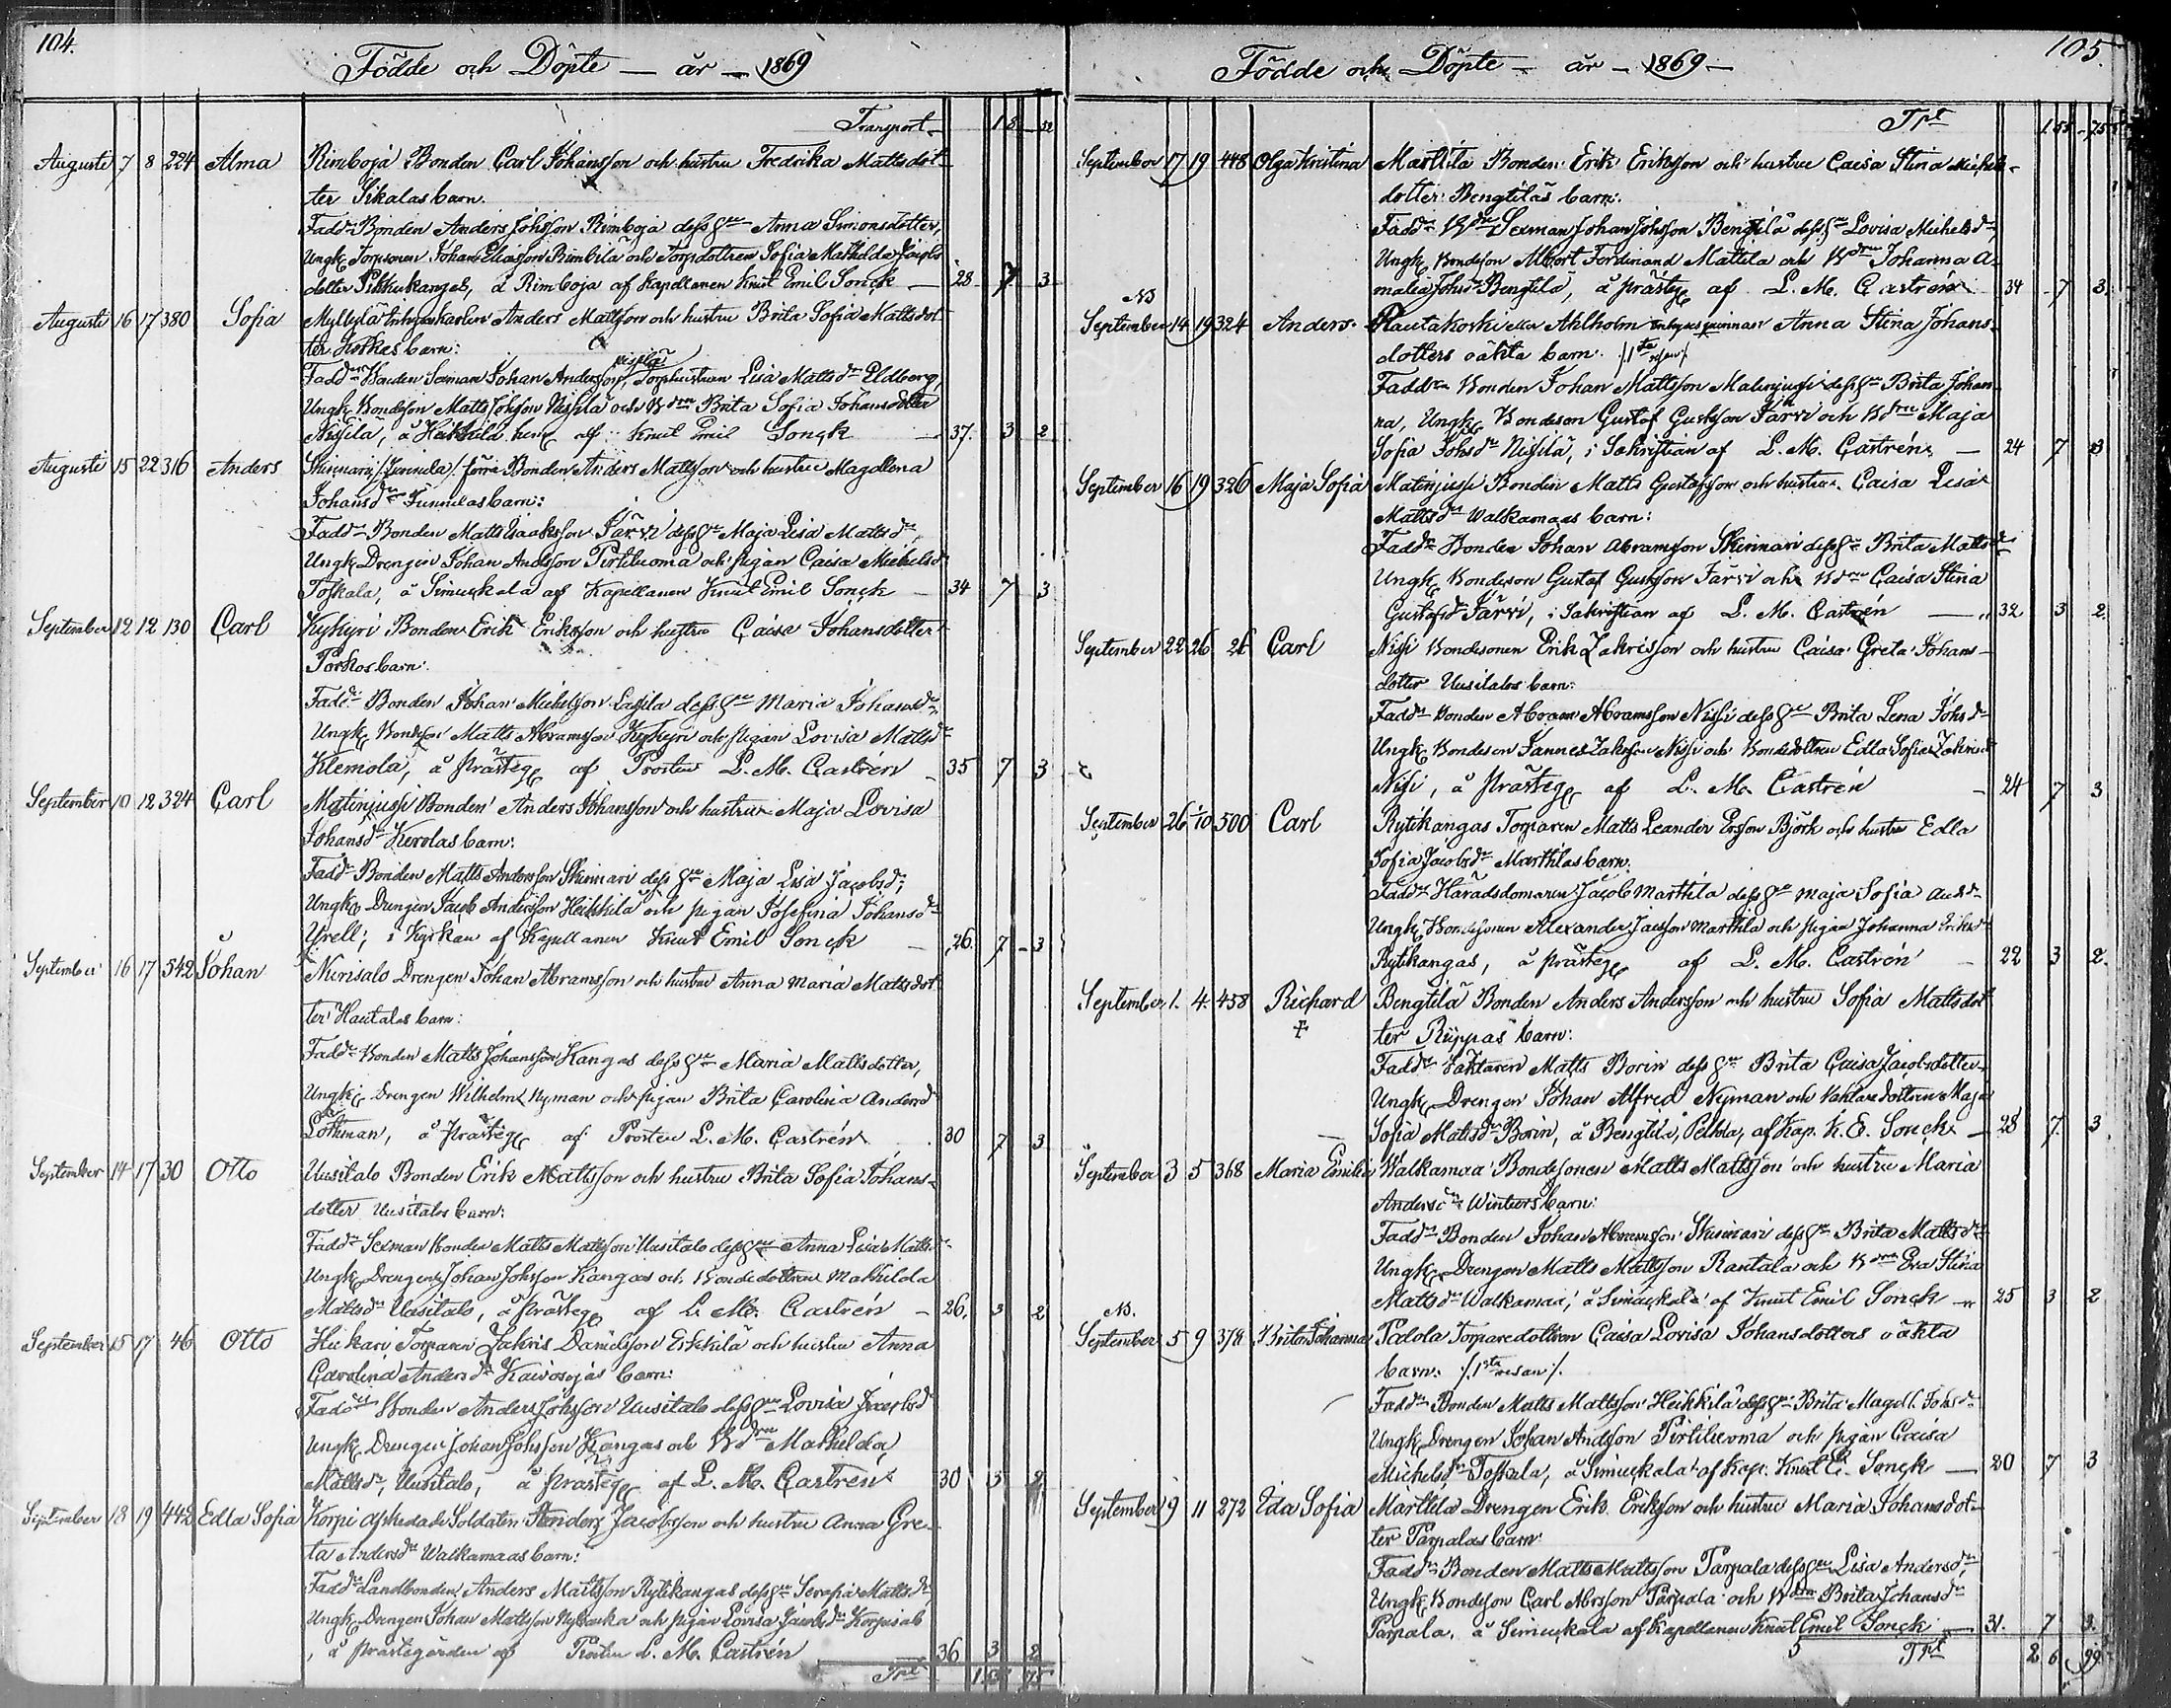 104.
Födde och Döpte — år — 1869
Transport
Augusti 7 8 224 Alma Rimboja Bonden Carl Johansson och hustru Fredrika Mattsdot-
ter Sikalas barn.
Fadd. Bonden Anders Johsson Rimboja dess Anna Simonsdotter,
Ungk. Torpsonen Johan Eliasson Rimbilä och Torpdottren Sofia Mathilda Jacobs
dotter Pihkukangas, å Rimboja af Kapellanen Knut Emil Sonck — 28 7 3
Augusti 16 17 380 Sofia Myllylä Inhysekarlen Anders Mattsson och hustru Brita Sofia Mattsdot
ter barn:
Fadd. Bonden Sexman Johan Andersson, Torphustrun Lisa Matts dr Eldberg,
Ungk. Bondeson Matts Johsson Nisjilä och B dren Brita Sofia Johansdotter
Nisjila, å Heikkilä af Knut Emil Sonck — 37. 3 2
Augusti 15 22 316 Anders Skinnari /Junnila/ förre Bonden Anders Mattsson och hustru Magdlena
Johans dr Junnilas barn:
Fadd. Bonden Matts Isaaksson Järvi dess Maja Lisa Matts dr,
Ungk. Drengen Johan Andsson Pirtiluoma och pigan Caisa Michels dr
Toskala, å Simuckala af Kapellanen Knut Emil Sonck — 34 7 3
September 12 12 130 Carl Kykyri Bonden Erik Eriksson och hustru Caisa Johansdotter
Porkos barn.
Fadd. Bonden Johan Michelsson Lassila dess Maria Johans dr,
Ungk. Bondeson Matts Abramsson Kykyri och pigan Lovisa Matts dr
Klemola, å Prästeg af Prosten L. M. Castrén 35 7 3
September 10 12 324 Carl Matinjussi Bonden Anders Johansson och hustru Maja Lovisa
Johans dr Kerolas barn:
Fadd. Bonden Matts Andersson Skinnari dess Maja Lisa Jacobs dr,
Ungk. Drengen Jacob Andersson Heikkilä och pigan Josefina Johans dr
Urell, i Kyrkan af Kapellanen Knut Emil Sonck — 26. 7 3
September 16 17 542 Johan Nurisalo Drengen Johan Abramsson och hustru Anna Maria Mattsdot
ter Hautalas barn:
Fadd. Bonden Matts Johansson Kangas dess Maria Mattsdotter,
Ungk. Drengen Wilhelm Nyman och pigan Brita Carolina Anders dr
Lothman, å prästeg af Prosten L. M. Castrén 30 7 3
September 14 17 30 Otto Uusitalo Bonden Erik Mattsson och hustru Brita Sofia Johans-
dotter Uusitalos barn:
Fadd. Sexman Bonden Matts Mattsson Uusitalo dess Anna Lisa Matts dr
Ungk. Drengen Johan Johsson Kangas och Bondedottren Mathilda
Matts dr Uusitalo, å prästeg af L. M. Castrén — 26. 3 2
September 15 17 46 Otto Torparen Zakris Danielsson Erkkilä och hustru Anna
Carolina Anders dr barn:
Fadd. Bonden Anders Johsson Uusitalo dess Lovisa Jacobs dr
Ungk. Drengen Johan Johsson Kangas och B dren Mathilda
Matts dr, Uusitalo, å prästeg af L. M. Castrén 30 3 2
September 18 19 442 Edla Sofia Korpi afskedade Soldaten Anders Jacobsson och hustru Anna Gre-
ta Anders dr Walkamaas barn:
Fadd. Landbonden Anders Mattsson Rytikangas dess Serafia Matts dr,
Ungk. Drengen Johan Mattsson och pigan Lovisa Jacobs dr
, å prästegården af Prosten L. M. Castrén 36 3 2
Tpt 155 75
105.
Födde och Döpte — år — 1869 —
Tpt 155 75
September 17 19 448 Olga Kristina Marttila Bonden Erik Eriksson och hustru Caisa Stina Michels-
dotter Bengtiläs barn:
Fadd. B den Sexman Johan Johsson Bengtilä dess Lovisa Michels dr,
Ungk. Bondeson Albert Ferdinand Mattila och B dren Johanna A-
malia Johs dr Bengtilä, å prästeg af L. M. Castrén 34 7 3.
NB
September 14 19 324 Anders Rautakoski eller Ahlholm inhyses qvinnan Anna Stina Johans-
dotters oäkta barn. /1sta resan/
Fadd. Bonden Johan Mattsson Matinjussi dess Brita Johan-
na, Ungk. Bondeson Gustaf Gustsson Järvi och B dren Maja
Sofia Johs dr Nisjilä, i Sakristian af L. M. Castrén — 24 7 3
September 16 19 326 Maja Sofia Matinjussi Bonden Matts Gustafsson och hustru Caisa Lisa
Matts dr Walkamaas barn:
Fadd. Bonden Johan Abramsson Skinnari dess Brita Matts dr
Ungk. Bondeson Gustaf Gustsson Järvi och B dren Caisa Stina
Gustafs dr Järvi, i Sakristian af L. M. Castrén — 32 3 2.
September 22 26 26 Carl Nisji Bondesonen Erik Zakrisson och hustru Caisa Greta Johans-
dotter Uusitalos barn:
Fadd. Bonden Abram Abramsson Nissi dess Brita Lena Johs dr
Ungk. Bondeson Jannes Zaksson Nissi och Bondedottren Edla Sofia Zakris dr
Nisi, å Prästeg af L. M. Castrén 24 7 3
September 26 1/10 500 Carl Rytikangas Torparen Matts Leander Ersson Björk och hustru Edla
Sofia Jacobs dr Marttilas barn.
Fadd. Häradsdomaren Jacob Marttila dess Maja Sofia And dr
Ungk. Bondesonen Alexander Jacsson Marttila och pigan Johanna Eriks dr
Rytikangas, å prästeg af L. M. Castrén — 22 3 2.
September 1. 4. 458 Richard Bengtilä Bonden Anders Andersson och hustru Sofia Mattsdot
ter Ryppas barn:
Fadd. Matts Borin dess Brita Caisa Jacobsdotter
Ungk. Drengen Johan Alfred Nyman och dottren Maja
Sofia Matts dr Borin, å Bengtilä, Peltola, af Kap. K. E. Sonck — 28 7. 3.
September 3 5 368 Maria Emilia Walkamaa Bondesonen Matts Mattsson och hustru Maria
Anders dr Winters barn:
Fadd. Bonden Johan Abramsson Skinnari dess Brita Matts dr
Ungk. Drengen Matts Mattsson Rantala och B dren Eva Stina
Matts dr Walkamaa, å Simuckala af Knut Emil Sonck — 25 3 2
NB.
September 5 9 378 Brita Johanna Padola Torparedottren Caisa Lovisa Johansdotters oäkta
barn: /1sta resan/.
Fadd. Bonden Matts Mattsson Heikkilä dess Brita Magdl. Johs dr
Ungk. Drengen Johan Andsson Pirtiluoma och pigan Caisa
Michels dr Toskala, å Simuckala af Kap. Knut E. Sonck — 20 7 3
September 9 11 272 Ida Sofia Marttila Drengen Erik Eriksson och hustru Maria Johansdot-
ter Parpalas barn:
Fadd. Bonden Matts Mattsson Parpala dess Lisa Anders dr,
Ungk. Bondeson Carl Abrsson Parpala och B dren Brita Johans dr
Parpala, å Simuckala af Kapellanen Knut Emil Sonck — 31. 7 3.
Tpt 2 6 99